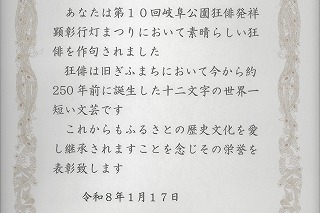 あなたは第１０回岐阜公園狂俳発祥
顕彰行灯まつりにおいて素晴らしい狂
俳を作句されました
狂俳は旧ぎふまちにおいて今から約
250年前に誕生した十二文字の世界一
短い文芸です
これからもふるさとの歴史文化を愛
し継承されますことを念じその栄誉を
表彰致します
令和８年１月１７日